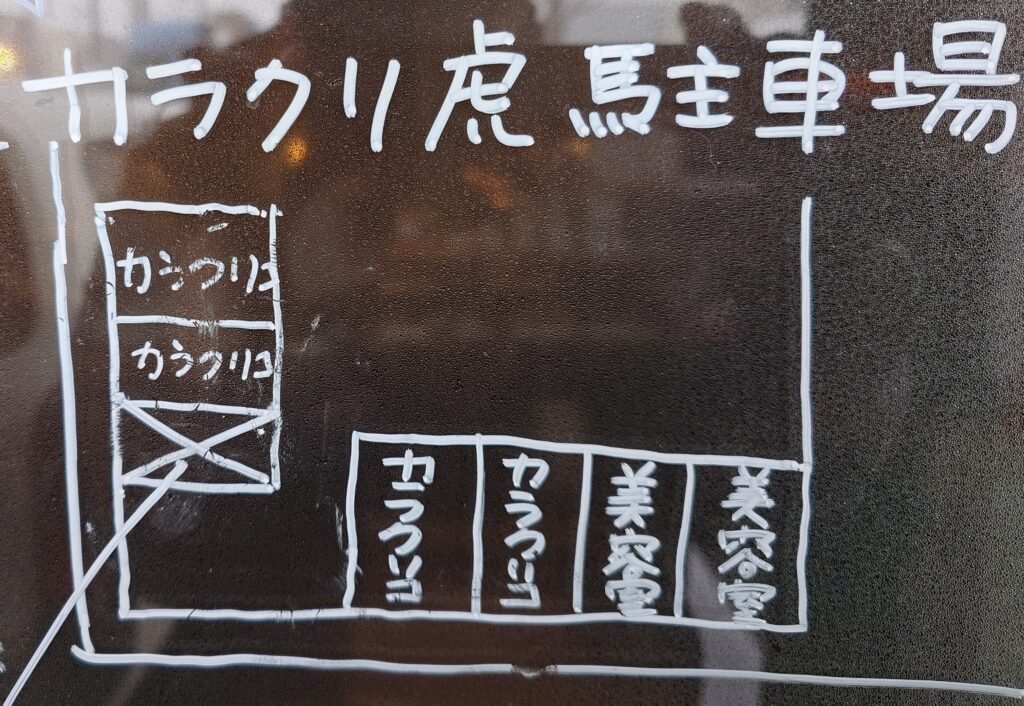 カラクリ虎 駐車場
カラクリコ
カラクリコ
カラクリコ
カラクリコ
美容室
美容室